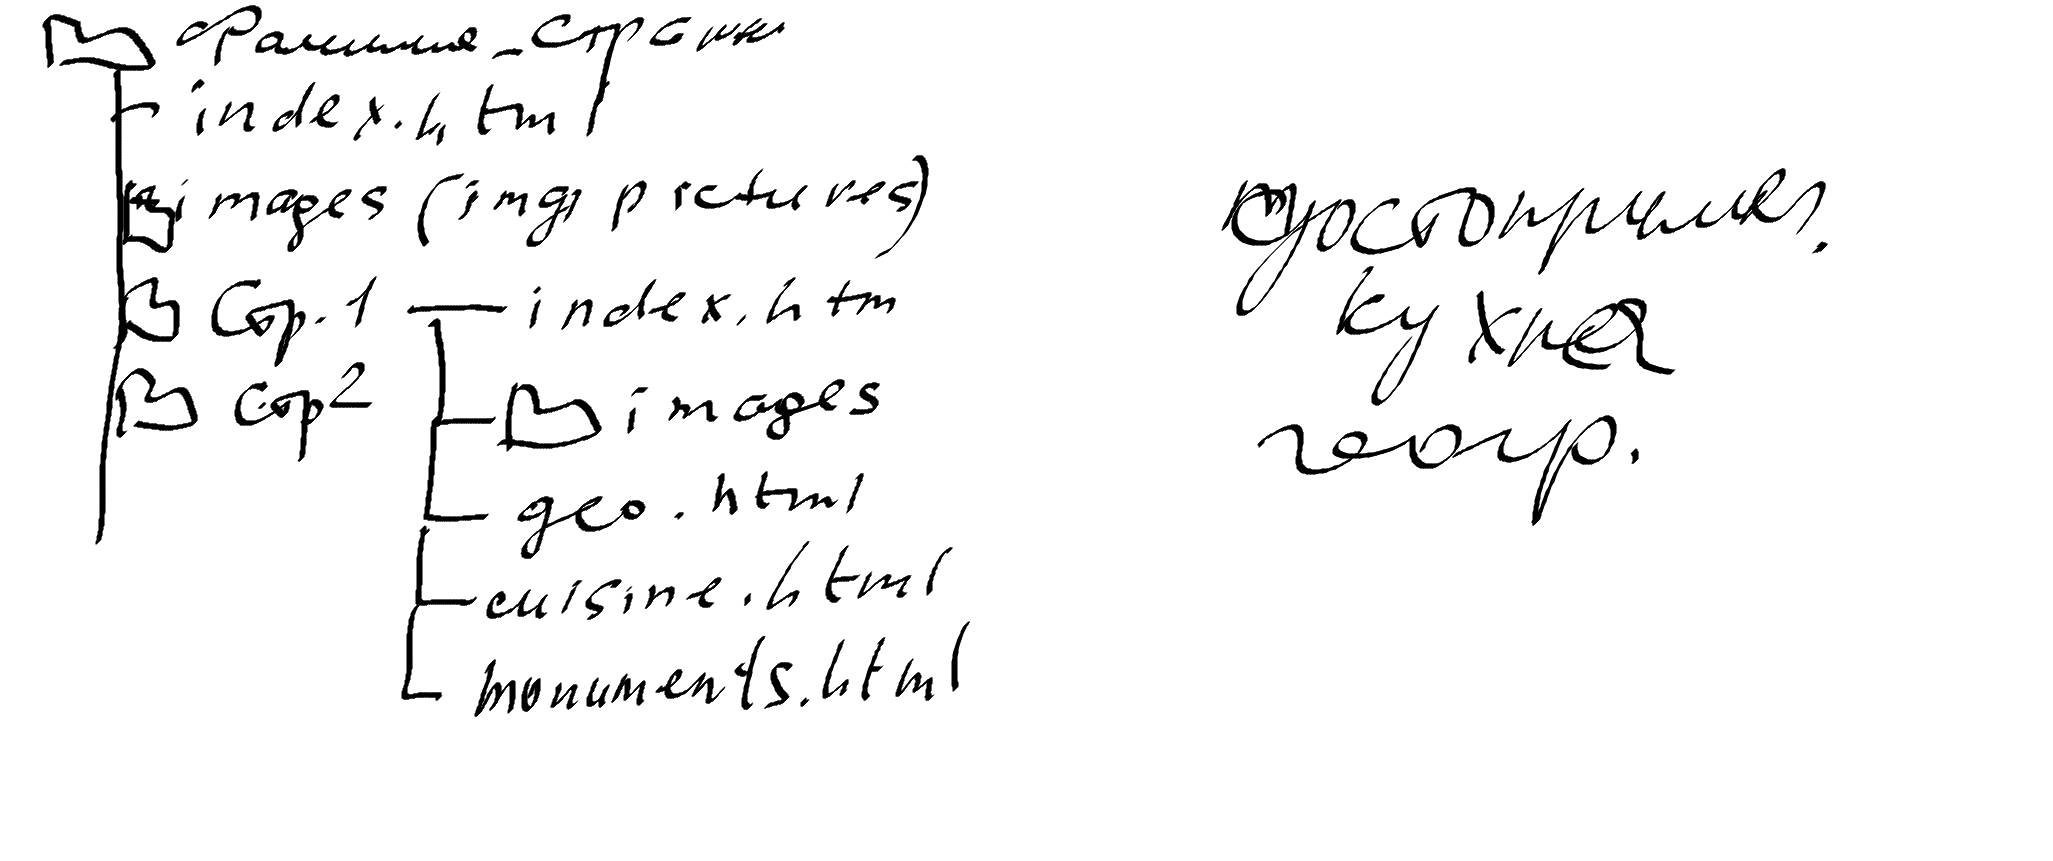 фамилия_страны
index.html
images (img, pictures)
Стр. 1 index.htm
Стр 2
images
geo.html
cuisine.html
monuments.html
достопримеч.
кухня
геогр.